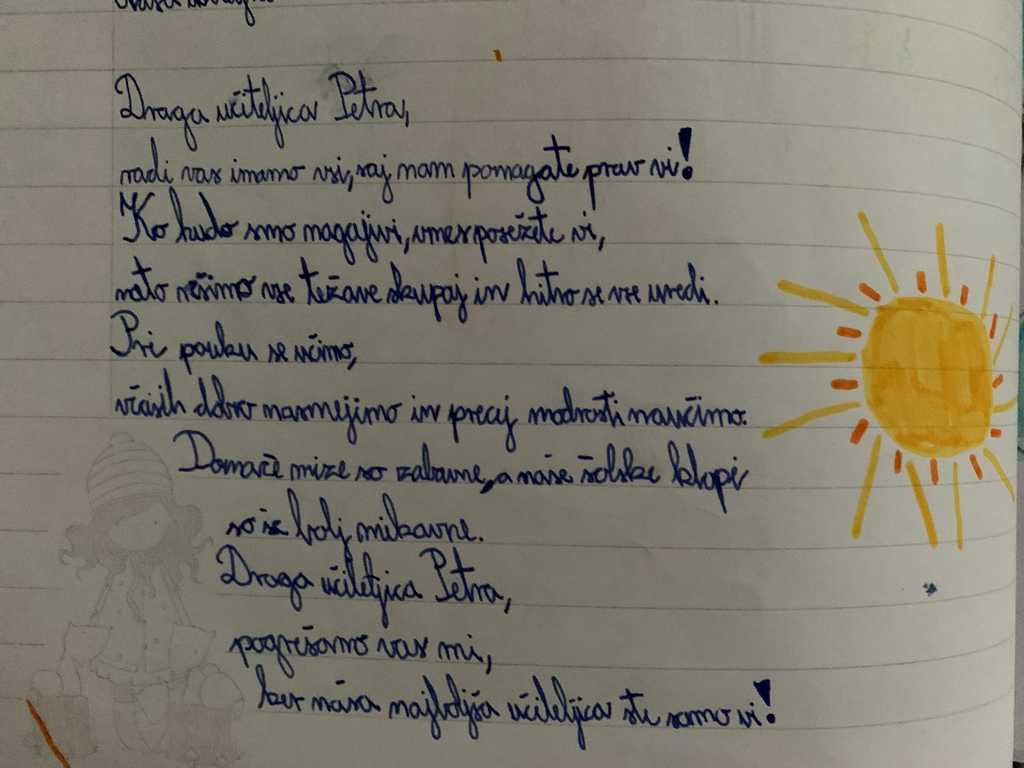 Draga učiteljica Petra,
radi vas imamo vsi, saj nam pomagate prav vi!
Ko hudo smo nagajivi, vmes posežete vi,
nato rešimo vse težave skupaj in hitro se vse uredi.
Pri pouku se učimo,
včasih dobro nasmejimo in precej modrosti naučimo.
Domače mize so zabavne, a naše šolske klopi
so še bolj mikavne.
Draga učiteljica Petra,
pogrešamo vas mi,
ker naša najboljša učiteljica ste samo vi!